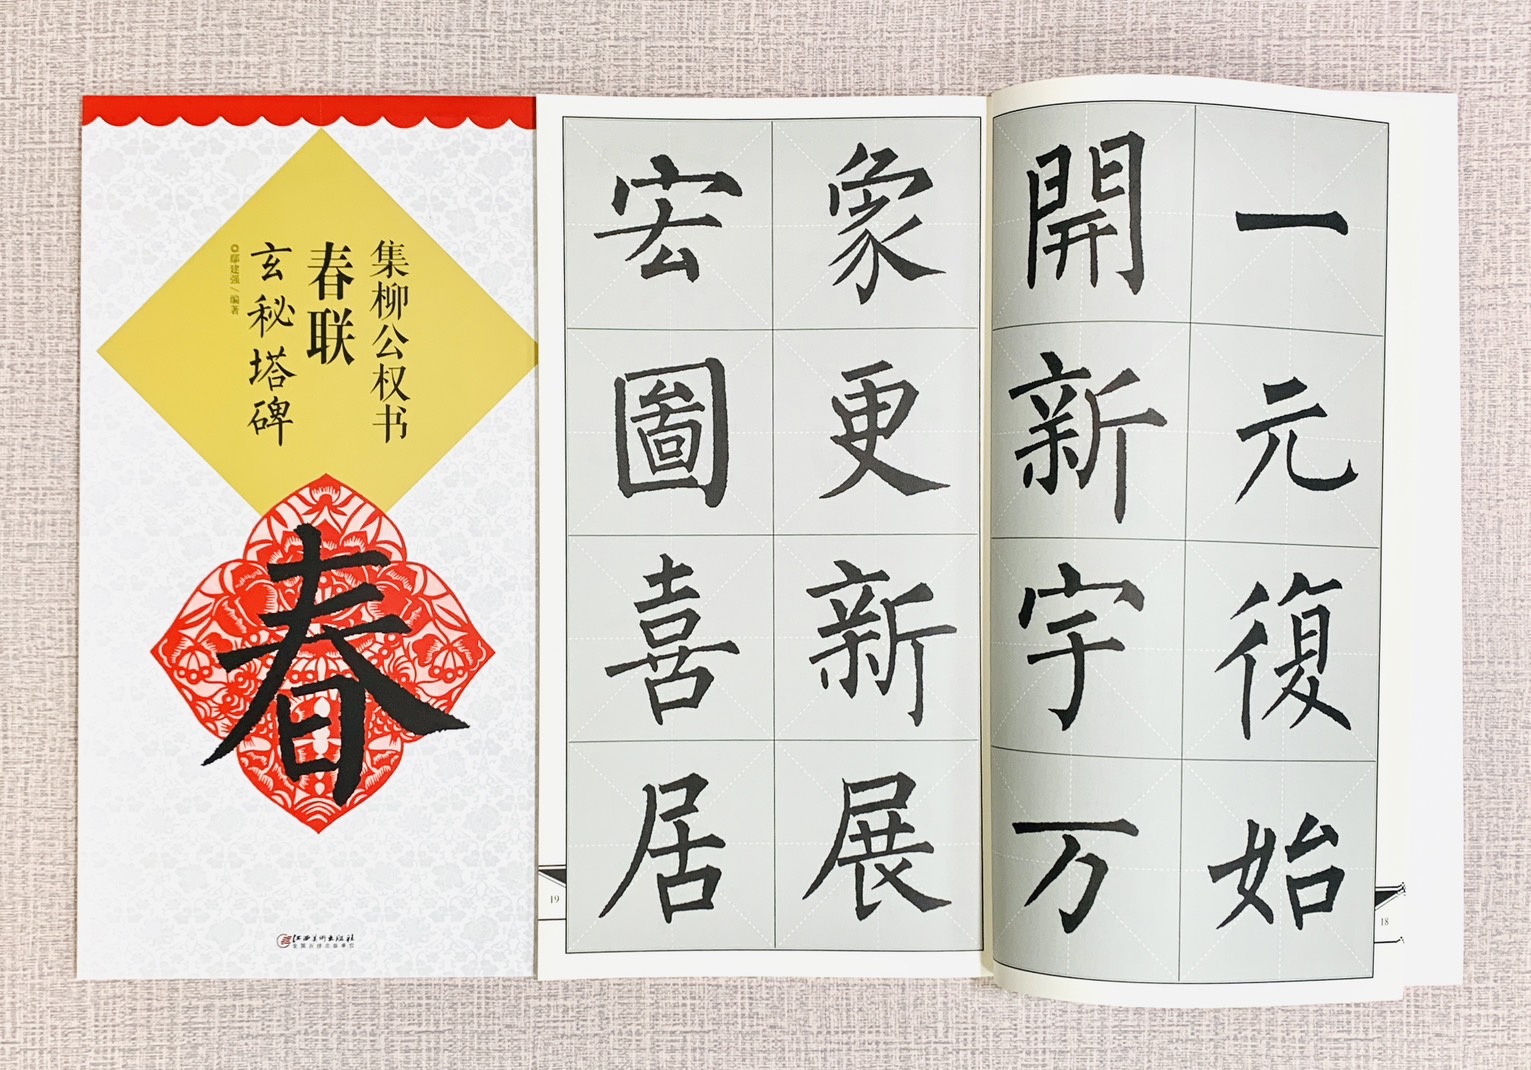 集柳公权书
春联
玄秘塔碑
◎鄢建强/编著
春
江西美术出版社
全国百佳出版单位
一元復始
開新宇万
18
象更新展
宏圖喜居
19